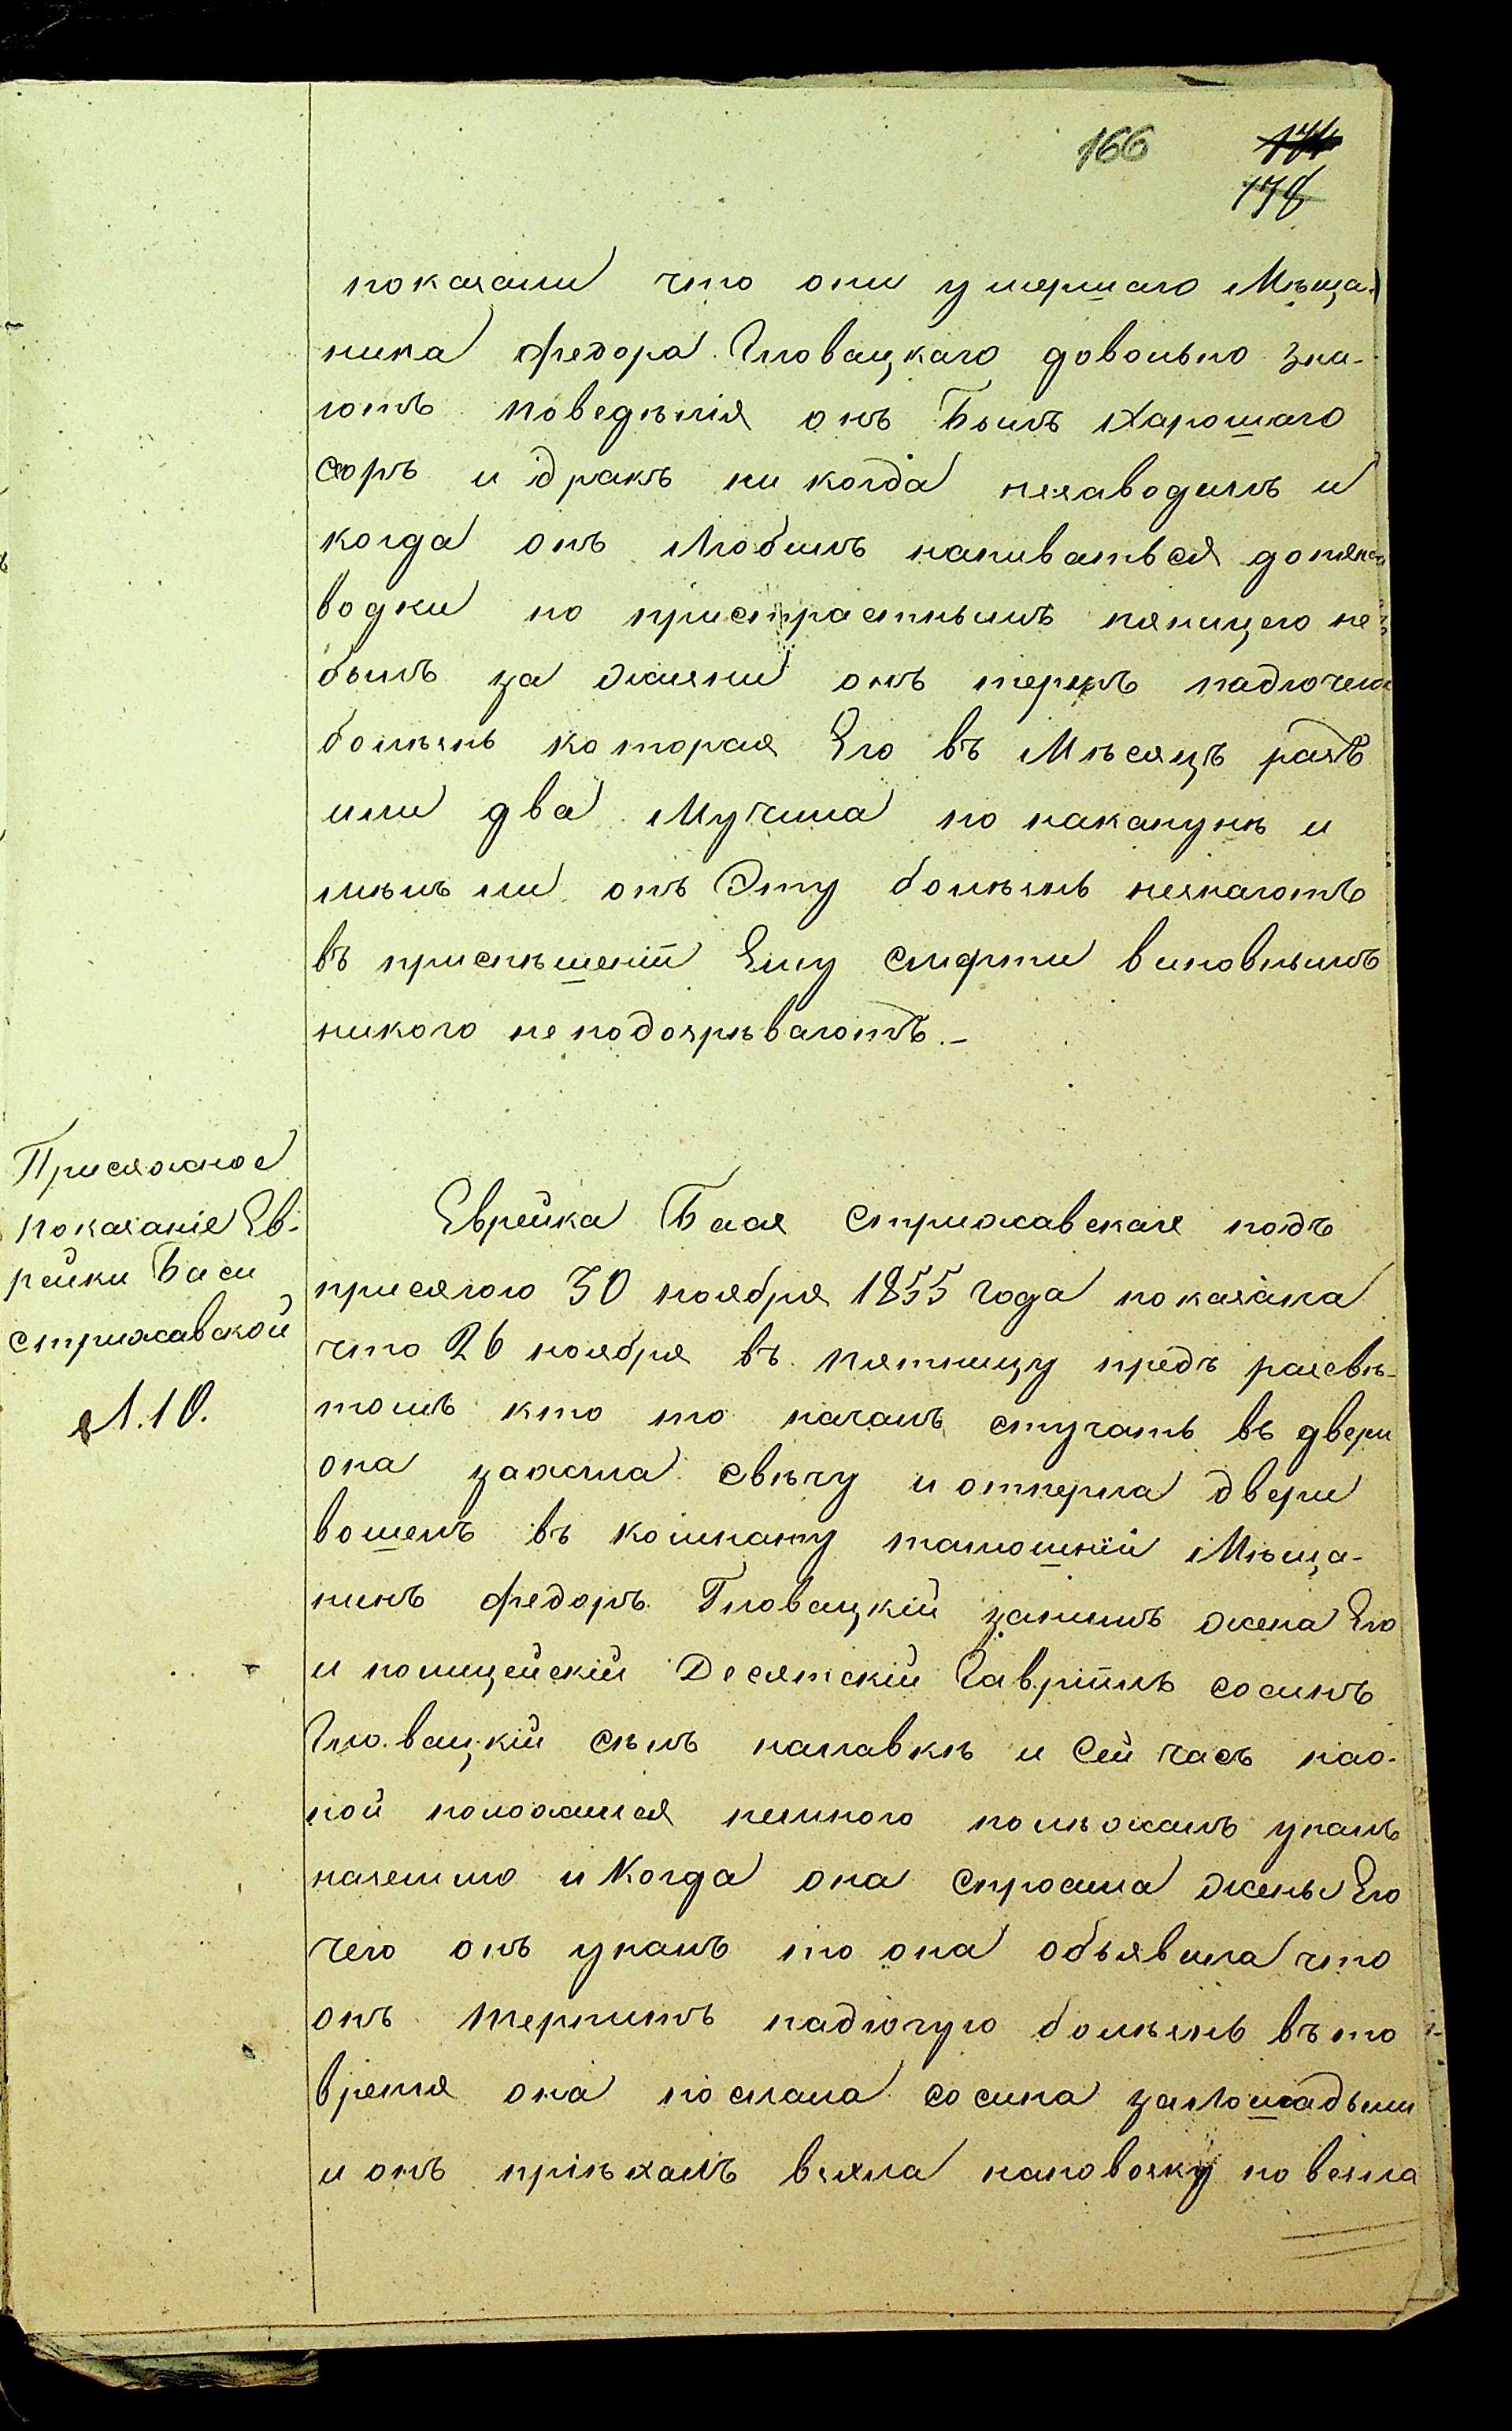 166
174
178
показали что они умершаго Мѣща-
нина Федора Гловацкаго довольно зна-
ютъ поведѣнія онъ Былъ Харошаго
соръ и дракъ ни когда незаводилъ и
когда онъ Любилъ напиватьься допяна
водки но пристрастнымъ пяницею не
былъ за жизни онъ терпѣлъ падючею
болѣзнь которая Его въ Мѣсяцъ разъ
или два Мучила но наканунѣ и
мѣлъ ли онъ Эту болѣзнь незнаютъ
въ приспѣшеніи Ему смерти виновнымъ
никого неподозрѣваютъ.-
Присяжное
показаніе Ев-
рейки Баси
стрижавской
Л. 10.
Еврейка Бася стрижавская подъ
присягою 30 ноября 1855 Года показала
что 26 ноября въ пятницу предъ разсвѣ-
томъ кто то началъ стучать въ двери
она зажгла свѣчу и отперла двери
вошелъ въ комнату тамошній Мѣща-
нинъ Федоръ Гловацкій занимъ жена Его
и полицейскій Десятскій Гавріилъ сосинъ
Гловацкій сѣлъ налавкѣ и Сей часъ нао-
ной положился немного полѣжалъ упалъ
наземлю и Когда она спросила жены Его
чего онъ упалъ то она объявила что
онъ терпитъ падючую болѣзнь въ то
время она послала сосина залошадьми
и онъ пріѣхалъ взяла наповозку повезла